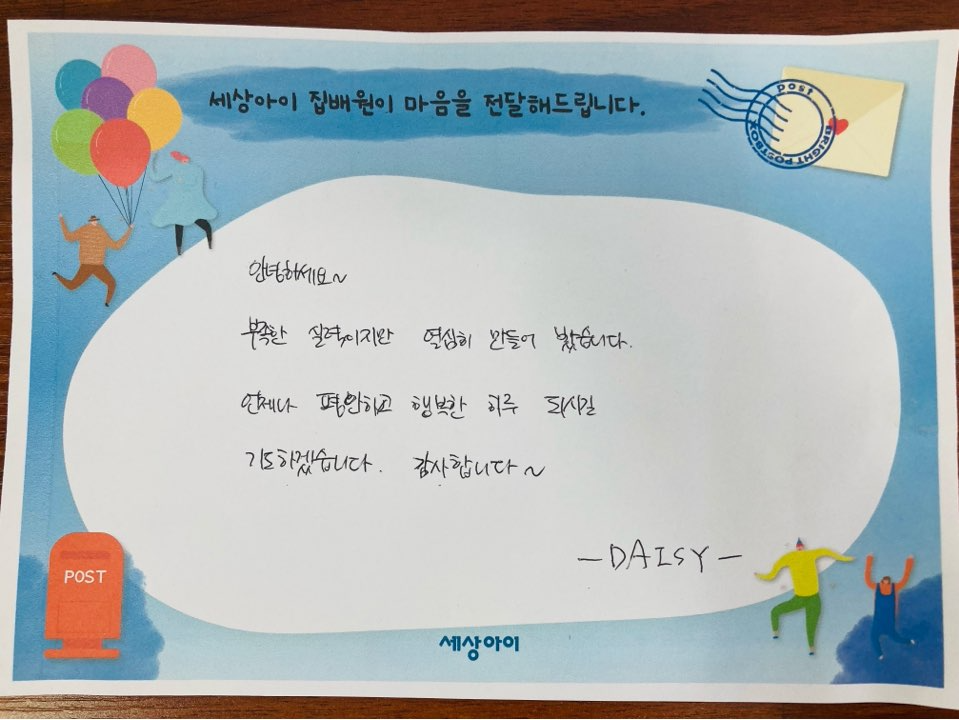 세상아이 집배원이 마음을 전달해드립니다.
post
BRIGHT POSTBOX
안녕하세요~
부족한 실력이지만 열심히 만들어 봤습니다.
언제나 평안하고 행복한 하루 되시길
기도하겠습니다. 감사합니다~
-DAISY-
POST
세상아이